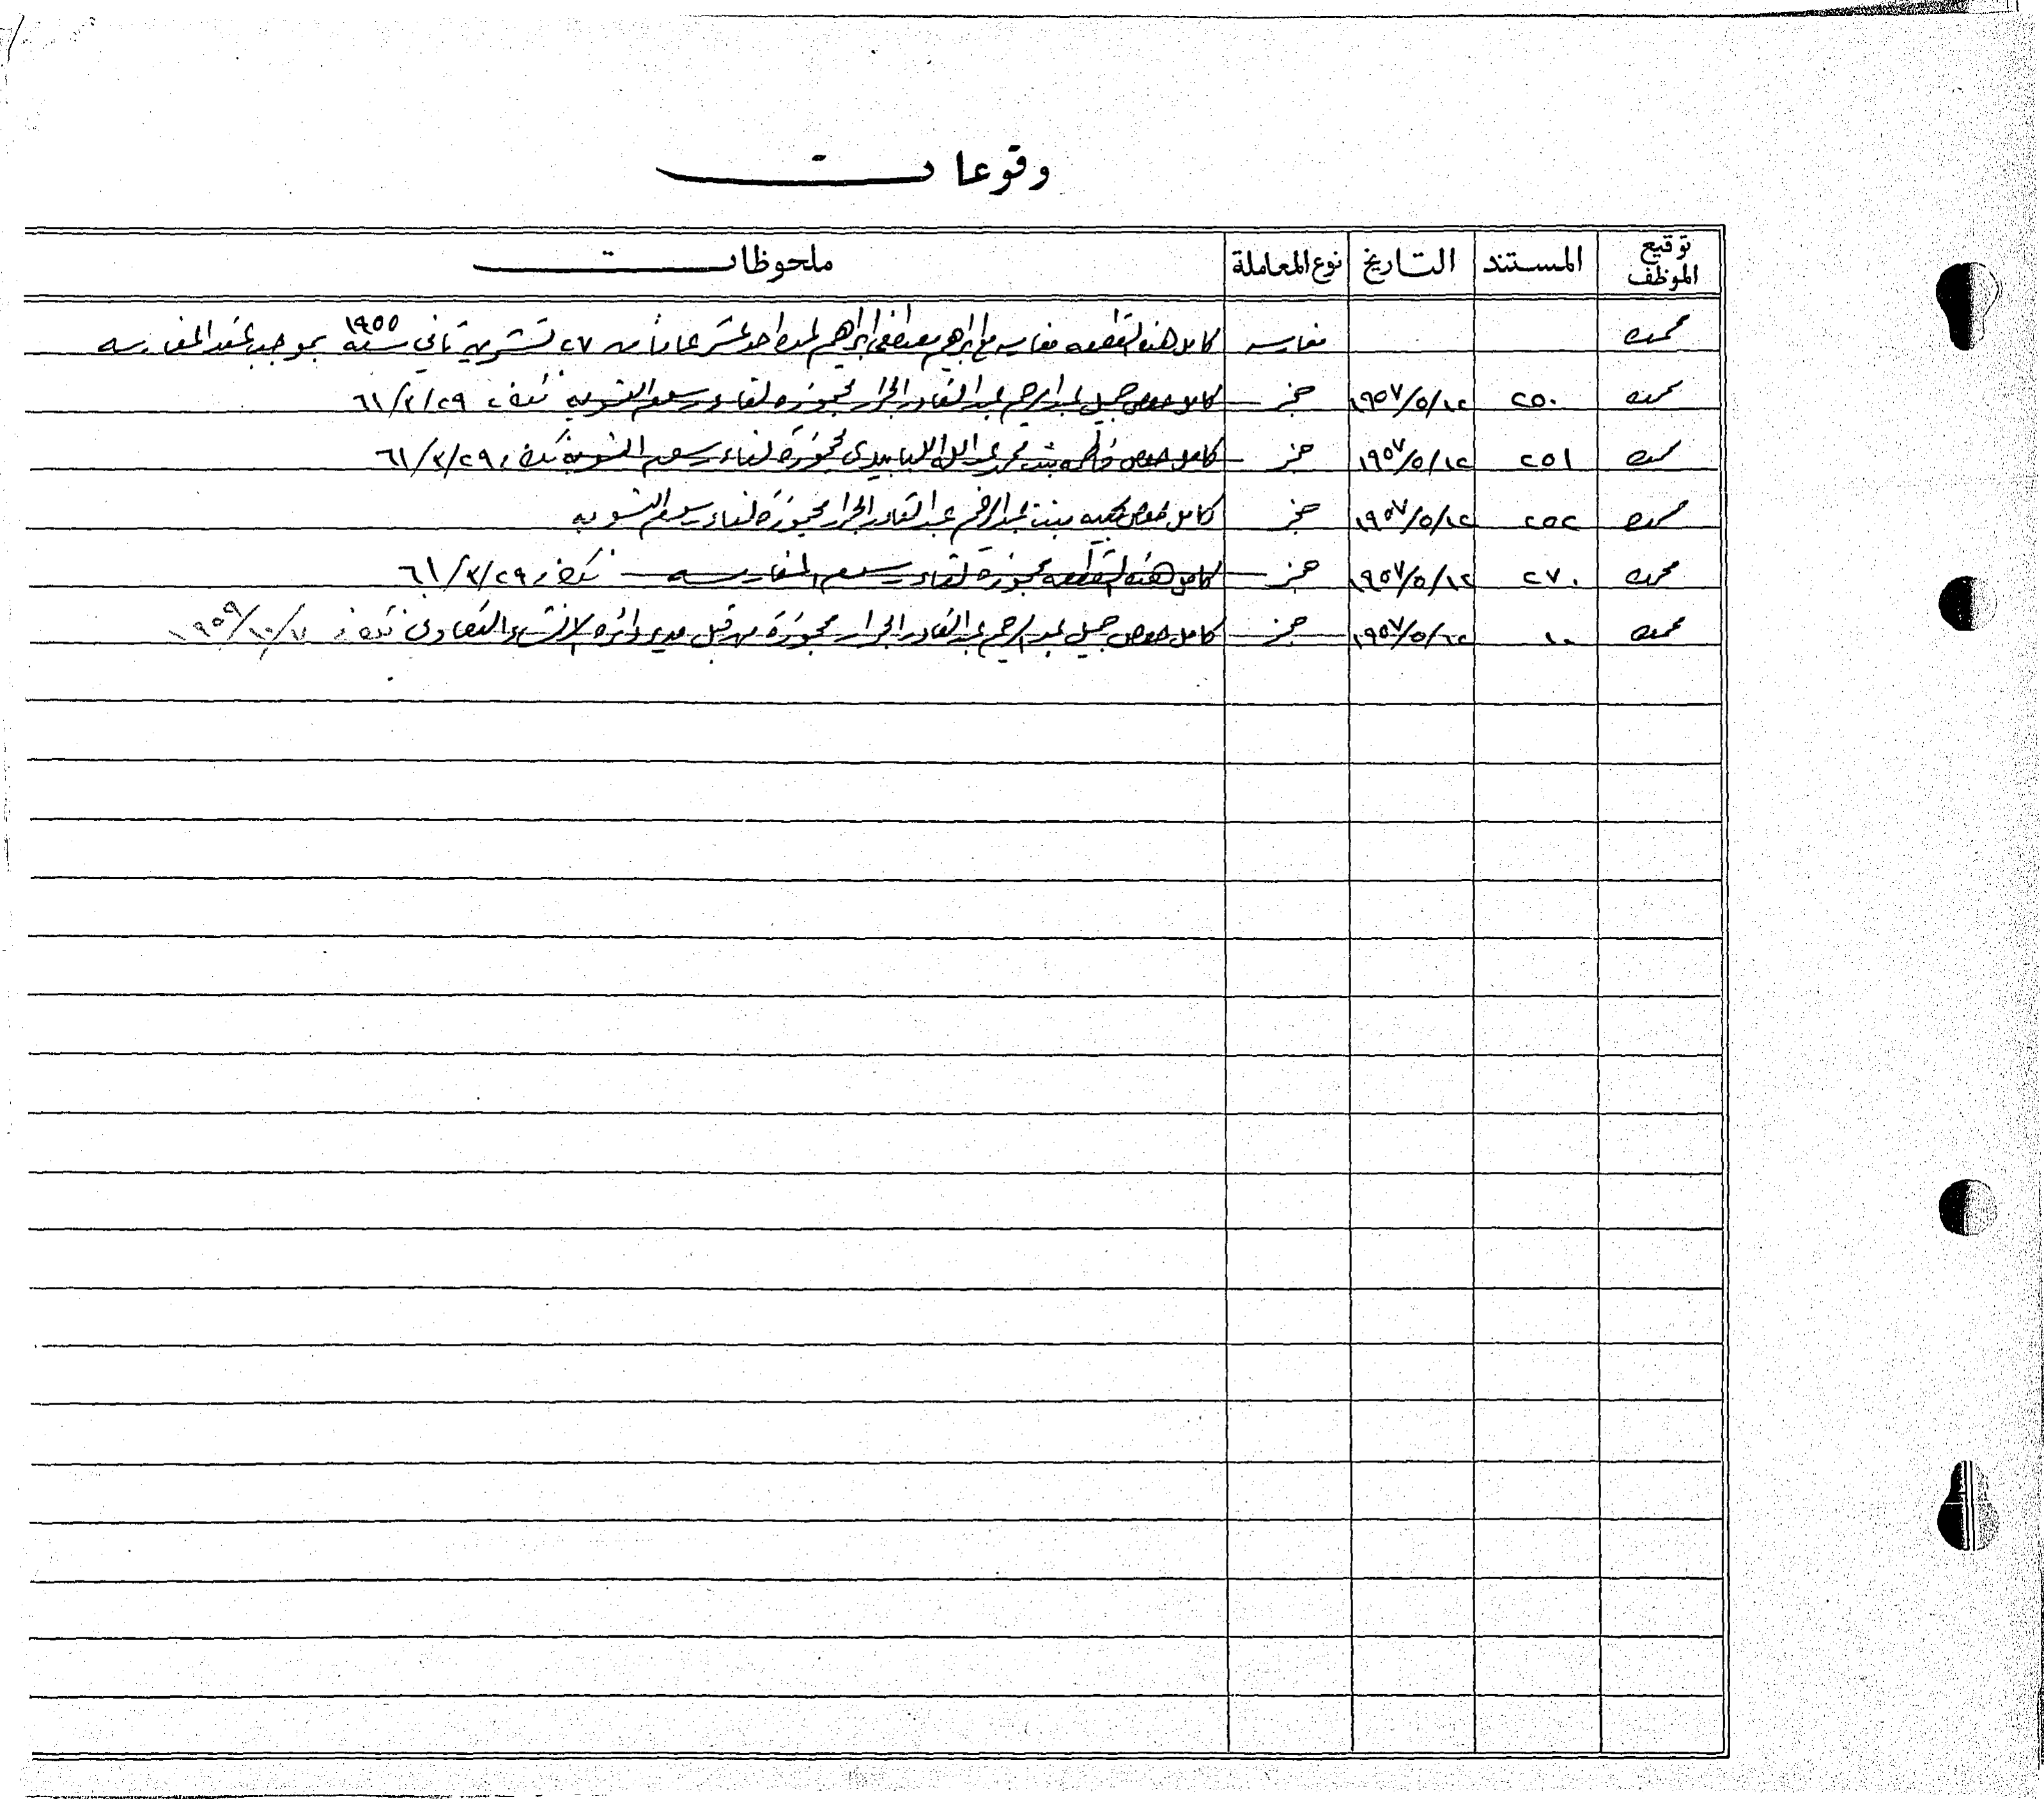 وقوعات
توقيع الموظف المستند التاريخ نوع المعاملة ملحوظات
مغارسه كامل هذه القطعه مغارسه مع ابراهيم مصطفى ابراهيم لمدة احد عشر عاماً من ٢٧ تشرين ثاني سنة ١٩٥٥ بموجب عقد المغارسه
٢٥٠ ١٩٥٧/٥/١٢ حجز كامل حصص جميل عبد الرحيم عبد القادر الجرار محجوزة لقاء رسوم التسويه ٦١/٣/٢٩
٢٥١ ١٩٥٧/٥/١٢ حجز كامل حصص فاطمه بنت محمد عبد الله اللبابيدي محجوزة لقاء رسوم التسويه ٦١/٣/٢٩
٢٥٢ ١٩٥٧/٥/١٢ حجز كامل حصص بنت عبد الرحيم عبد القادر الجرار محجوزة لقاء رسوم التسويه
٢٧٠ ١٩٥٧/٥/١٢ حجز كامل هذه القطعه محجوزة لقاء رسوم المغارسه ٦١/٣/٢٩
١٠ ١٩٥٧/٥/١٢ حجز كامل حصص جميل عبد الرحيم عبد القادر الجرار محجوزة من قبل مدير دائرة الانشاء التعاوني